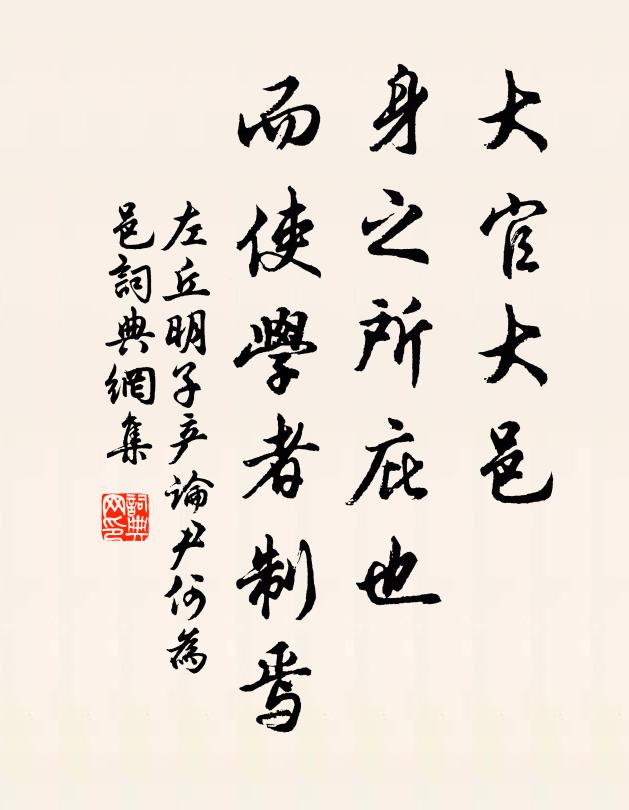 大官大邑
身之所庇也
而使學者制焉
左丘明子产論尹何為
邑詞典網集
詞典
网印